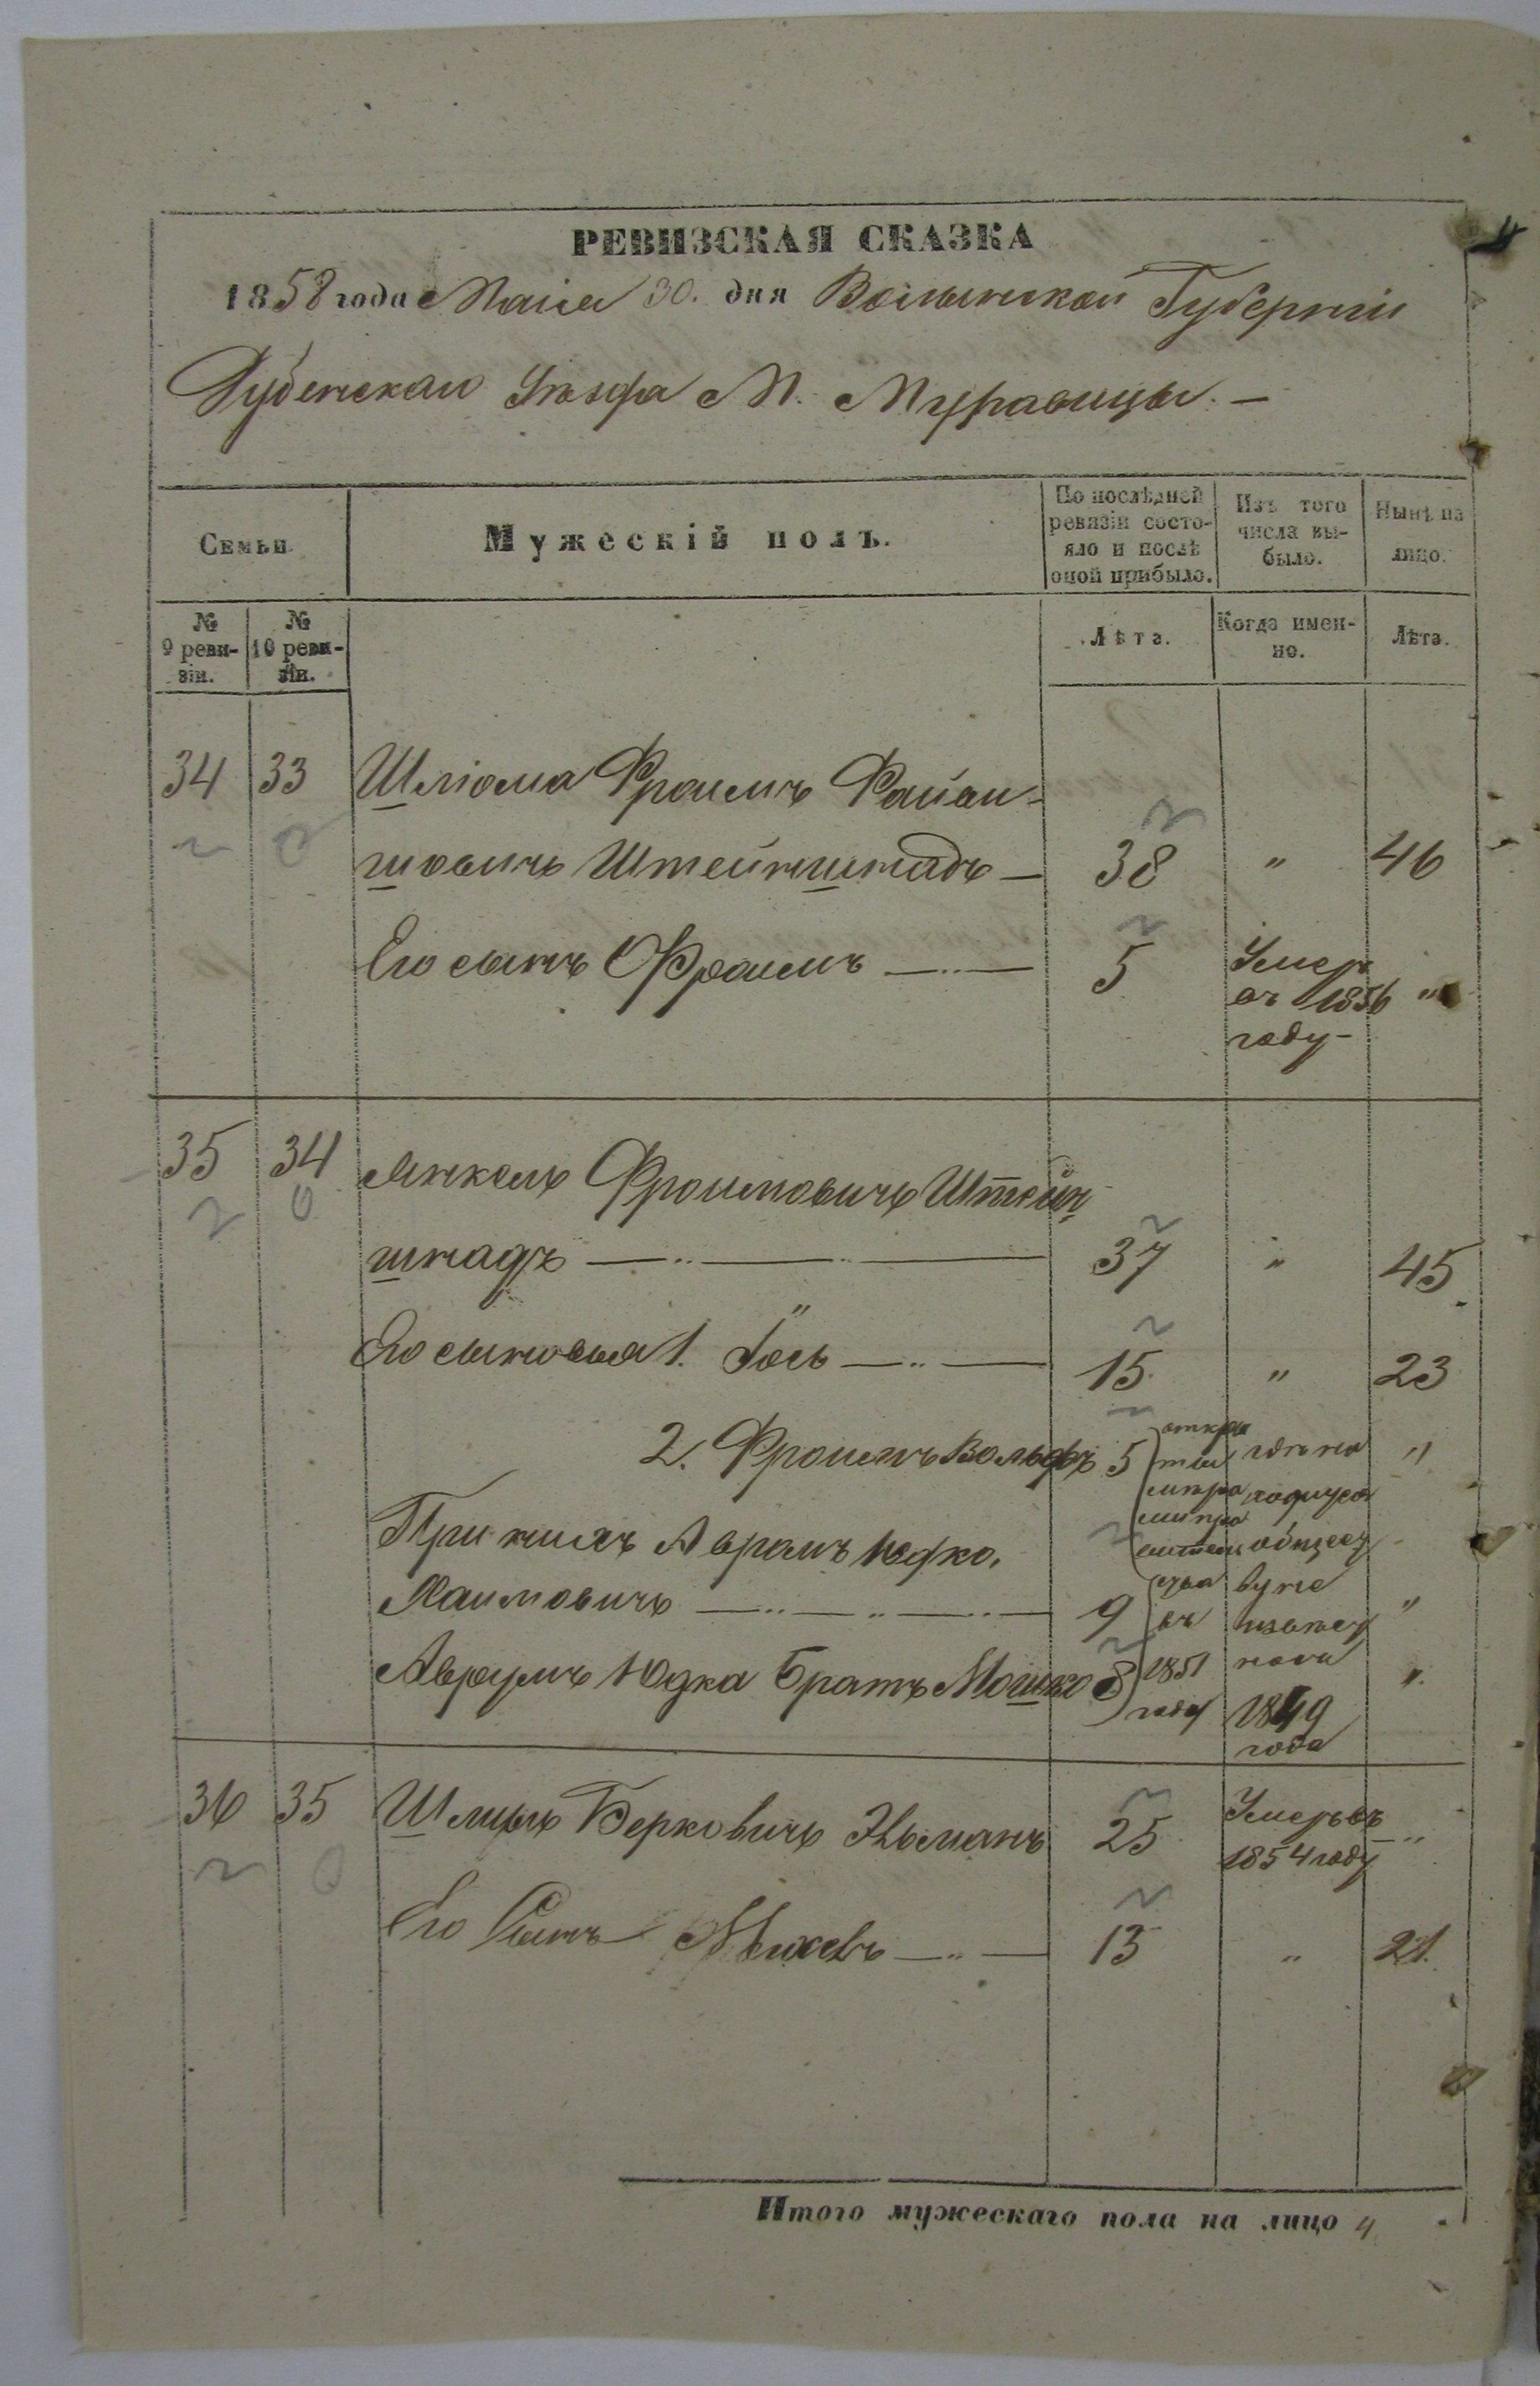 РЕВИЗСКАЯ СКАЗКА
1858 года Маія 30. дня Волынской Губерніи
Дубенскаго Уѣзда М. Муравицы. —
Семьи
Мужескій полъ.
По послѣдней ревизіи состояло и послѣ оной прибыло.
Изъ того числа выбыло.
Нынѣ на лицо.
№ 9 ревизіи.
№ 10 ревизіи.
Лѣта.
Когда именно.
Лѣта.
34 33 Шліома Фроимъ
шовичъ Штейншнадъ — 38 " 46
Его сынъ Фроимъ — 5 Умеръ въ 1856 году — "
35 34 Янкель Фроимовичъ Штейн-
шнадъ — 37 " 45
Его сыновья 1. Іось — 15 " 23
2. Фроимъ Вольфъ 5 "
При нихъ Аврамъ Юдко
Хаимовичъ — 9 "
Аврумъ Юдка Братъ Мошко 8 "
въ 1851 году
1849 года
36 35 Шмуль Берковичъ 25 Умеръ въ 1854 году "
Его Сынъ 13 " 21.
Итого мужескаго пола на лицо 4